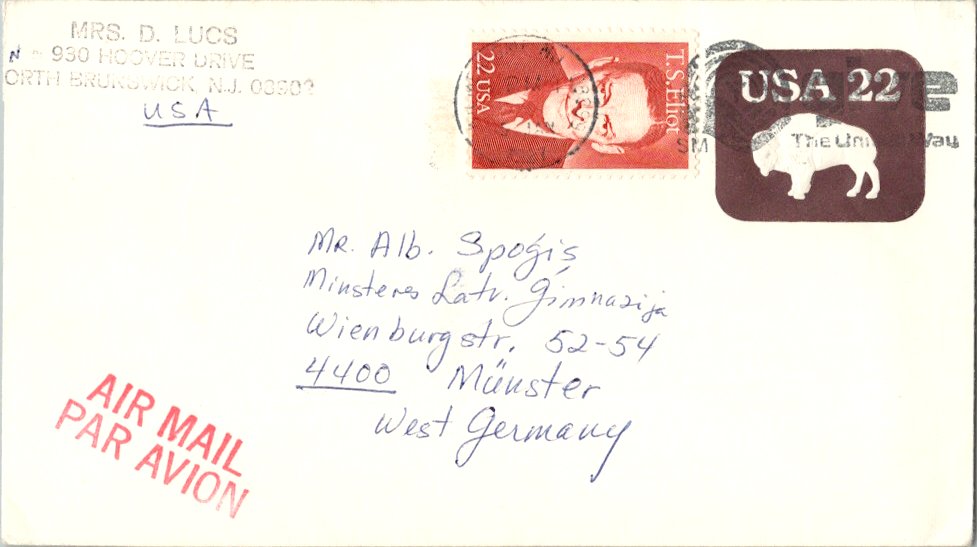 MRS. D. LUCS
N 930 HOOVER DRIVE
ORTH BRUNSWICK, N.J. 08902
USA
T.S. Eliot
22 USA
USA 22
SM
The United Way
Mr. Alb. Spoģis
Minsteres Latv. ģimnazija
Wienburgstr. 52-54
4400 Münster
West Germany
AIR MAIL
PAR AVION